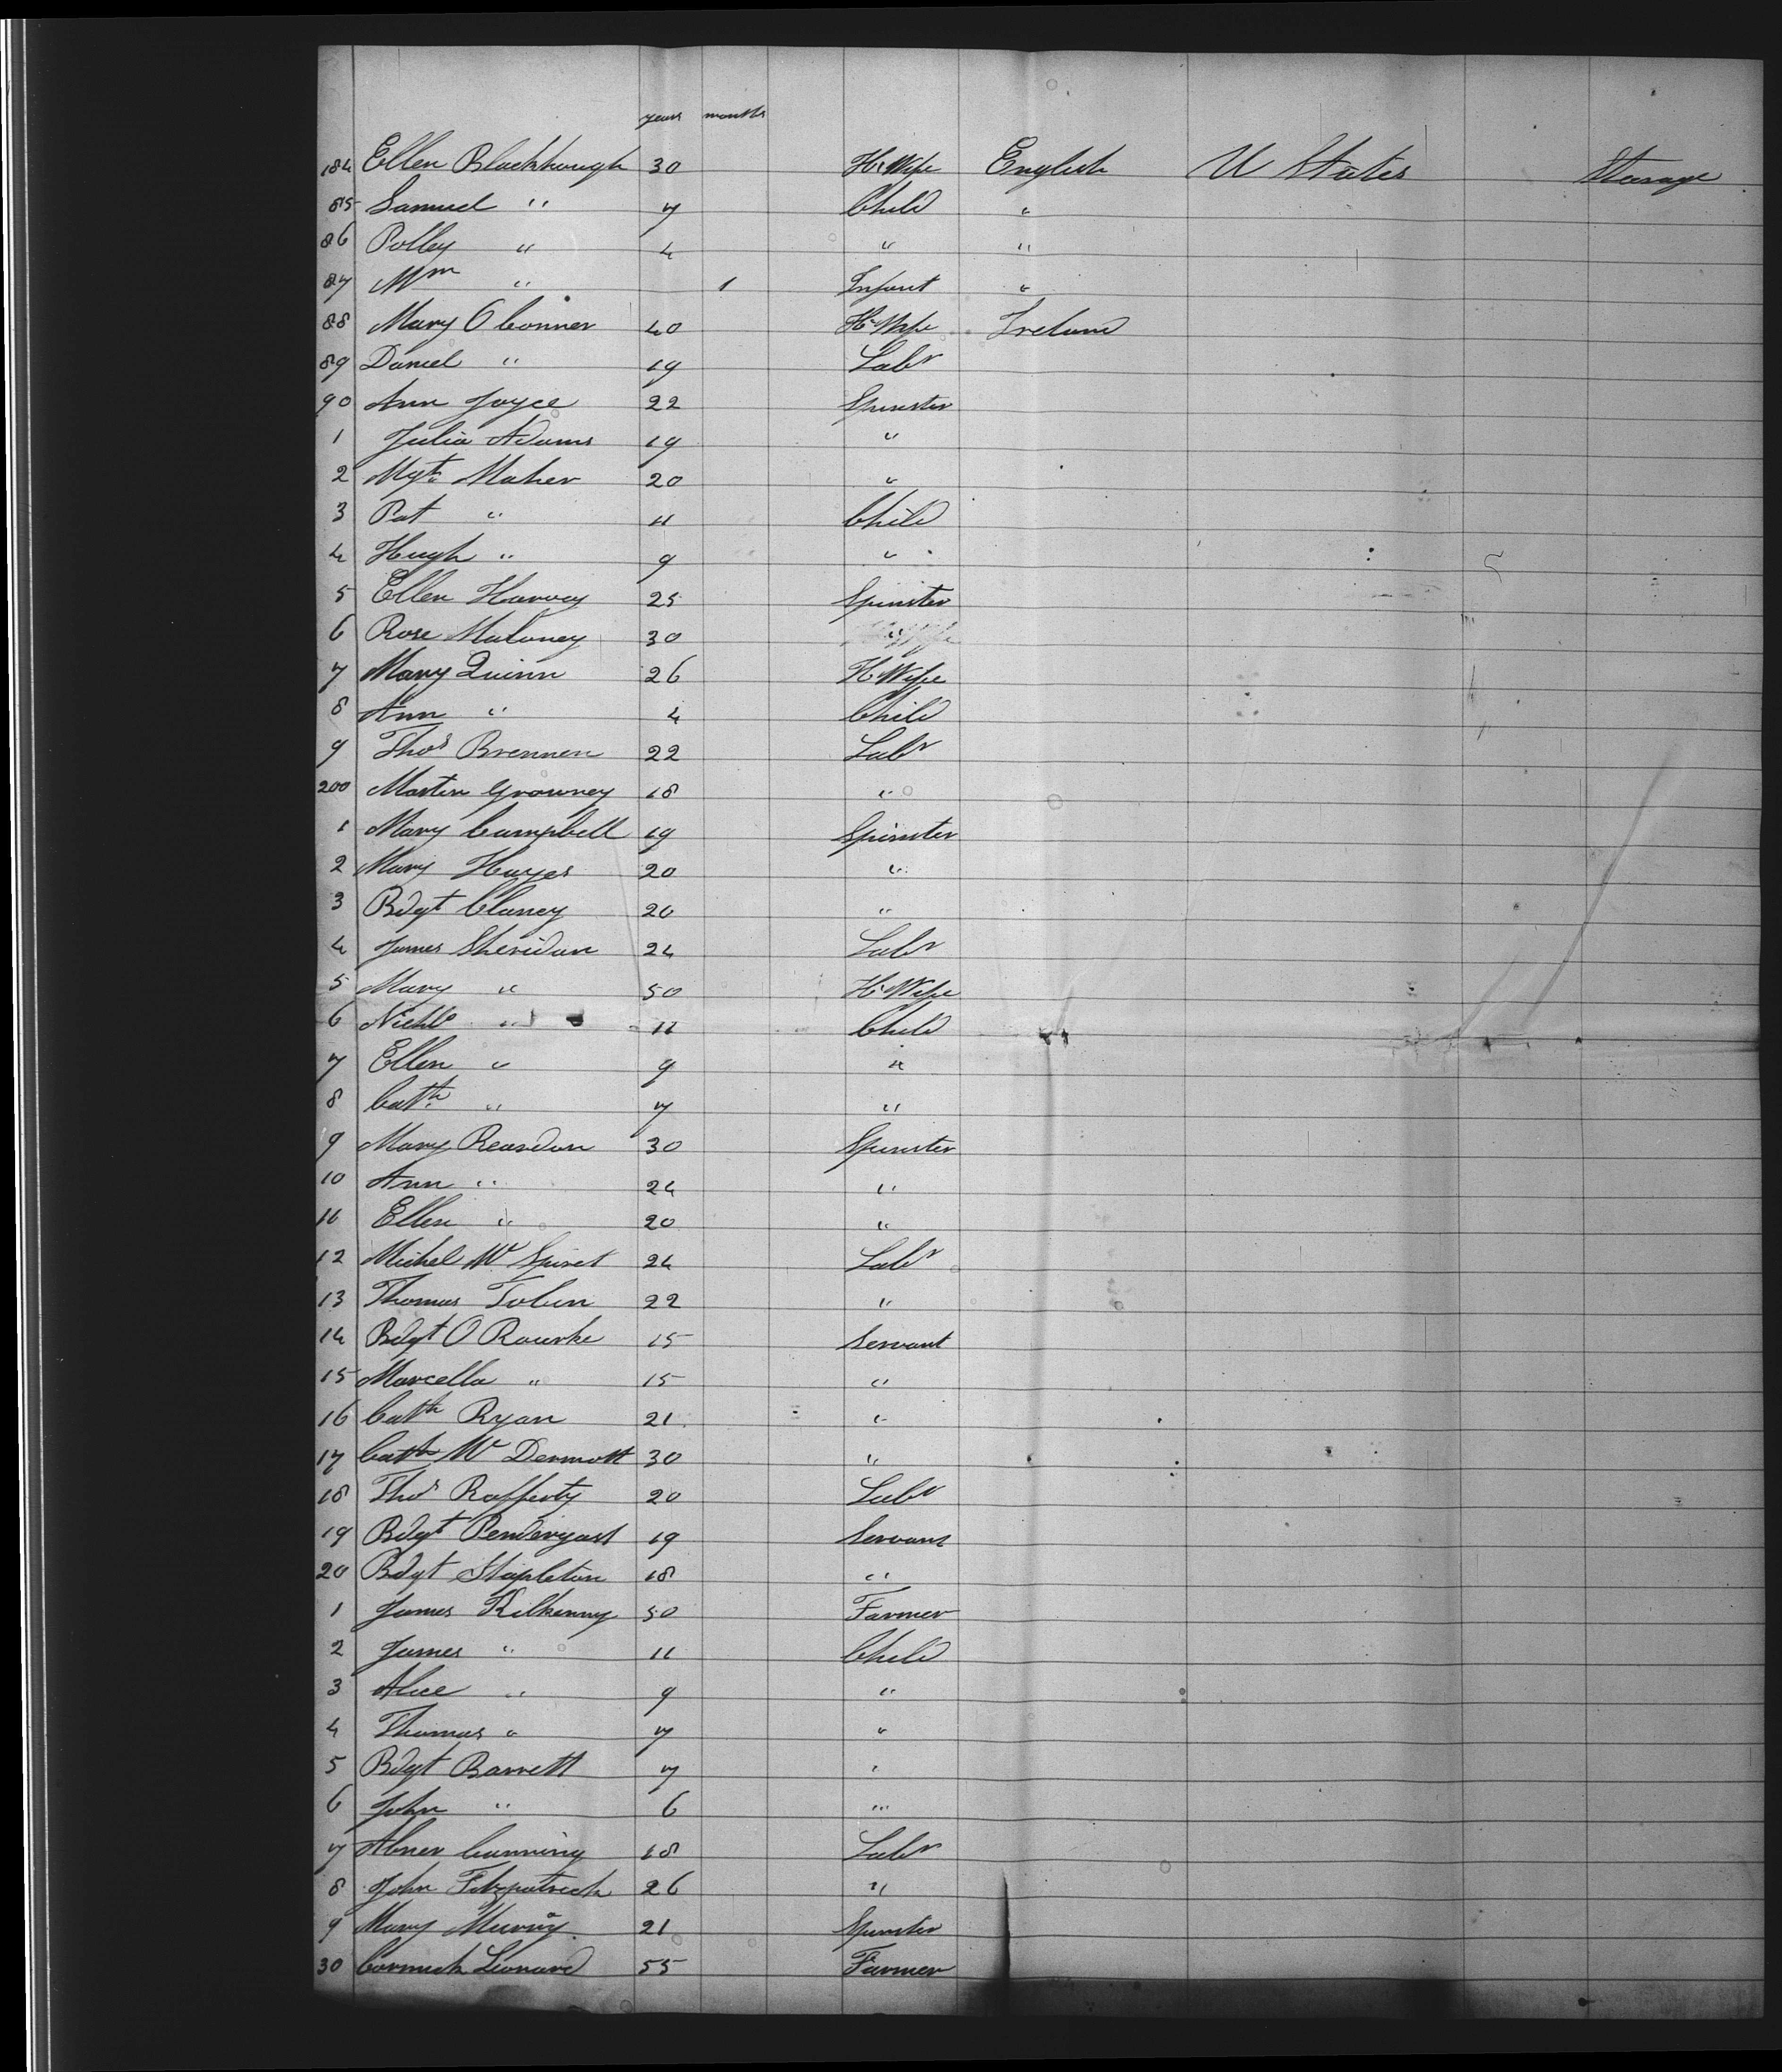 years months
184 Ellen Blackhough 30 H. Wife English U States Steerage
85 Samuel " 7 Child "
86 Polley " 4 " "
87 Wm " 1 Infant "
88 Mary O Conner 40 H. Wife Ireland
89 Daniel " 19 Labr
90 Ann Joyce 22 Spinster
1 Julia Adams 19 "
2 Mgt Maher 20 "
3 Pat " 11 Child
4 Hugh " 9 "
5 Ellen Harvey 25 Spinster
6 Rose Maloney 30 "
7 Mary Quinn 26 H. Wife
8 Ann " 4 Child
9 Thos Brennen 22 Labr
200 Martin Growney 18 "
1 Mary Campbell 19 Spinster
2 Mary Hayes 20 "
3 Bdgt Clancy 20 "
4 James Sheridan 24 Labr
5 Mary " 50 H. Wife
6 Nichls " 11 Child
7 Ellen " 9 "
8 Cath " 7 "
9 Mary Reardon 30 Spinster
10 Ann " 24 "
11 Ellen " 20 "
12 Michel Mc 24 Labr
13 Thomas Tobin 22 "
14 Bdgt O Rourke 15 Servant
15 Marcella " 15 "
16 Cath Ryan 21 "
17 Cath Mc Dermott 30 "
18 Thos Rafferty 20 Labr
19 Bdgt Pendergast 19 Servant
20 Bdgt Stapleton 18 "
1 James Kilkenny 50 Farmer
2 James " 11 Child
3 Alice " 9 "
4 Thomas " 7 "
5 Bdgt Barrett 7 "
6 John " 6 "
7 Abner Cunning 18 Labr
8 John Fitzpatrick 26 "
9 Mary Murray 21 Spinster
30 Cormick Leonard 55 Farmer